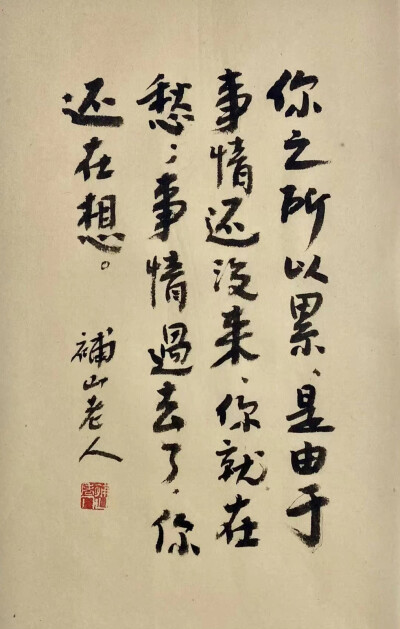 你之所以累、是由于
事情还没来、你就在
愁；事情過去了、你
还在想。
補山老人